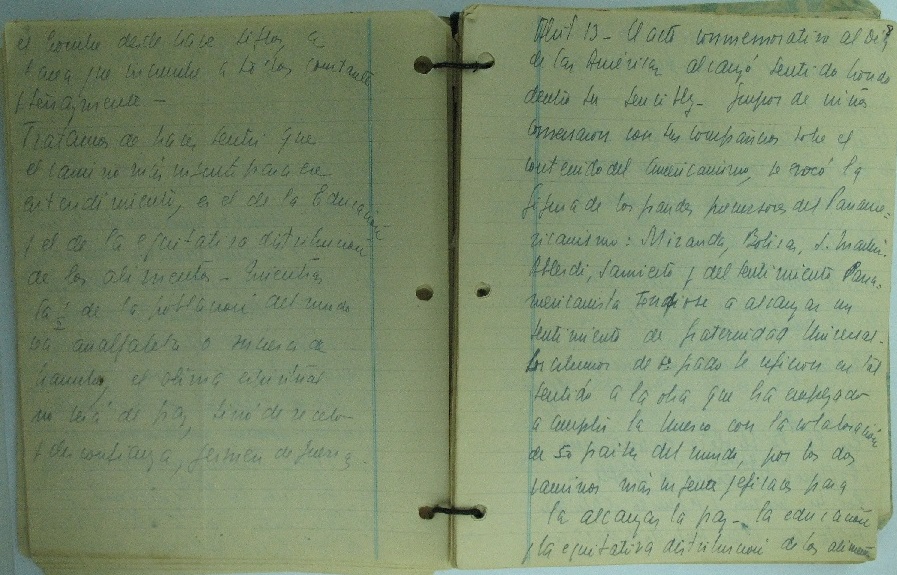 el hombre desde hace siglos, a
tarea que incumbe a todos constante
y tenazmente -
Tratamos de hacer sentir que
el camino más urgente para ese
entendimiento, es el de la Educación
y el de la equitativa distribución
de los alimentos - Mientras
la ½ de la población del mundo
sea analfabeta o muera de
hambre, el clima espiritual
no será de paz, sinó de recelo
y desconfianza, germen de guerra -
Abril 13 - El acto conmemorativo al Día
de las Américas alcanzó sentido hondo
dentro su sencillez - Grupos de niños
conversaron con sus compañeros sobre el
contenido del americanismo, se evocó la
figura de los grandes precursores del Paname-
ricanismo: Miranda, Bolívar, S. Martín,
Alberdi, Sarmiento y del sentimiento Pana-
mericanista tendióse a alcanzar un
sentimiento de fraternidad Universal.
Los alumnos de 5º grado se refirieron en tal
sentido a la obra que ha empezado
a cumplir la Unesco con la colaboración
de 50 países del mundo, por los dos
caminos más urgentes y eficaces para
la alcanzar la paz - la educación
y la equitativa distribución de los alimentos